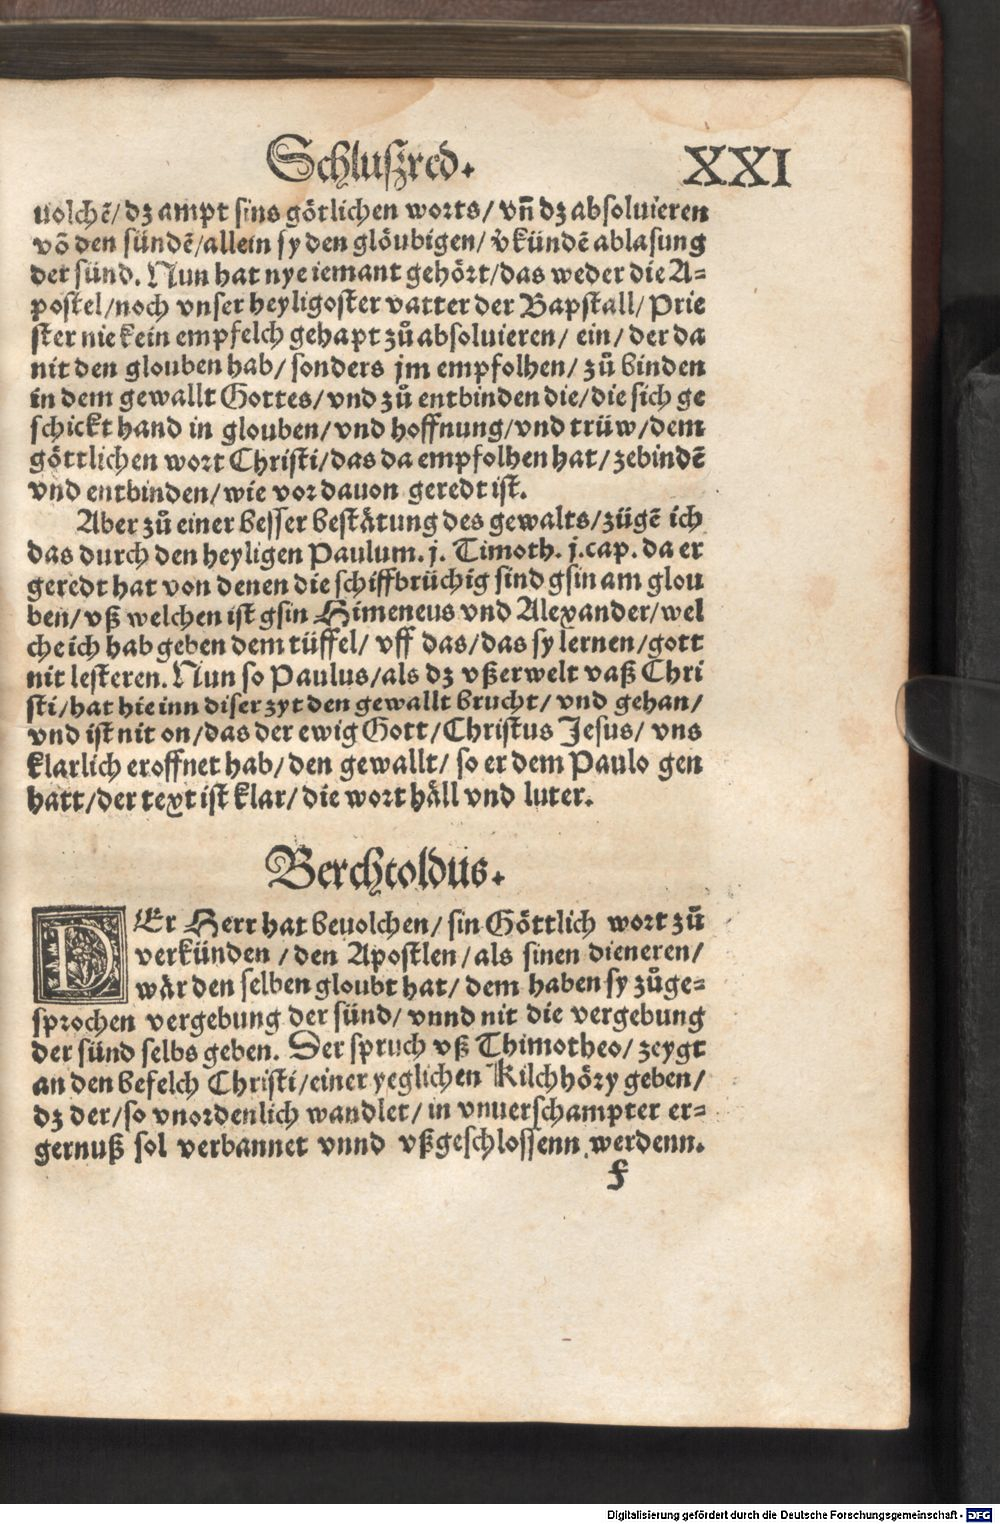 Schluſzred.
XXI
uolchē/ dz ampt sins götlichen worts/ vn̄ dz absoluieren
vō den sündē/allein sy den glöubigen/ v̊kündē ablasung
der sünd. Nun hat nye iemant gehört/das weder die A-
postel/noch vnser heyligoster vatter der Bapst all/ Prie
ster nie kein empfelch gehapt zů absoluieren/ ein/ der da
nit den glouben hab/ sonders jm empfolhen/ zů binden
in dem gewallt Gottes/ vnd zů entbinden die/die sich ge
schickt hand in glouben/ vnd hoffnung/vnd trüw/dem
göttlichen wort Christi/das da empfolhen hat/ zebindē
vnd entbinden/wie vor dauon geredt ist.
Aber zů einer besser bestätung des gewalts/zügē ich
das durch den heyligen Paulum. j. Timoth. j.cap. da er
geredt hat von denen die schiffbrüchig sind gsin am glou
ben/ vß welchen ist gsin Himeneus vnd Alexander/wel
che ich hab geben dem tüffel/ vff das/das sy lernen/gott
nit lesteren. Nun so Paulus/als dz vßerwelt vaß Chri
sti/hat hie inn diser zyt den gewallt brucht/ vnd gehan/
vnd ist nit on/das der ewig Gott/Christus Jesus/ vns
klarlich eroffnet hab/den gewallt/ so er dem Paulo gen
hatt/der text ist klar/die wort häll vnd luter.
Berchtoldus.
DEr Herr hat beuolchen/ sin Göttlich wort zů
verkünden/den Apostlen/als sinen dieneren/
wär den selben gloubt hat/ dem haben sy zůge-
sprochen vergebung der sünd/ vnnd nit die vergebung
der sünd selbs geben. Der spruch vß Thimotheo/ zeygt
an den befelch Christi/einer yeglichen Kilchhöry geben/
dz der/so vnordenlich wandlet/in vnuerschampter er-
gernuß sol verbannet vnnd vßgeschlossenn werdenn.
f
Digitalisierung gefördert durch die Deutsche Forschungsgemeinschaft - DFG